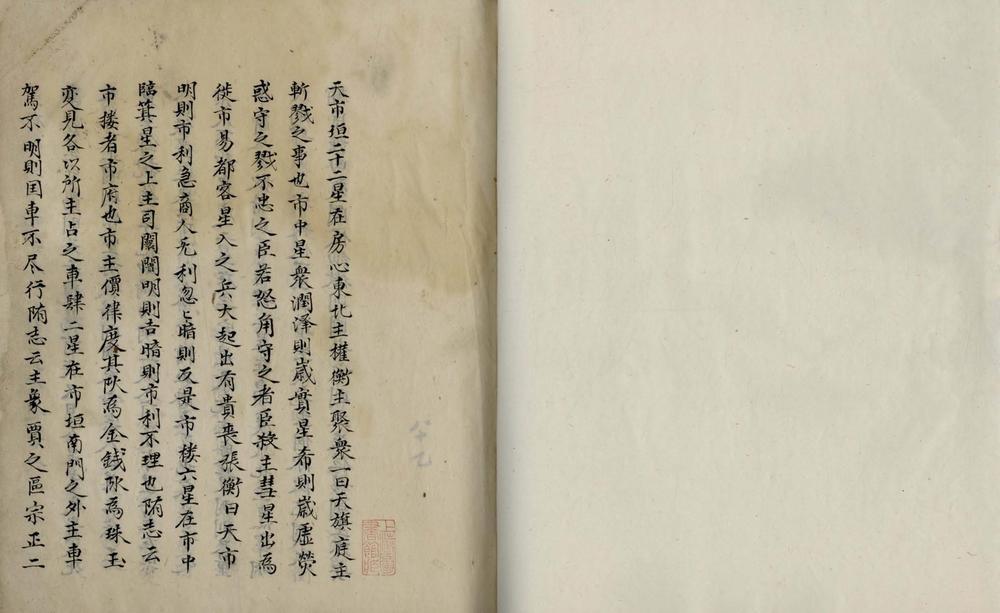 天市垣二十二星在房心東北主權衡主聚衆一曰天旗庭主
斬戮之事也市中星衆潤泽則歲實星希則歲虛熒
惑守之戮不忠之臣若怒角守之者臣殺主彗星出爲
徙市易都客星入之兵大起出有貴喪張衡曰天市
明則市利急商人无利忽〻暗則反是市楼六星在市中
臨箕星之上主司闤闠明則吉暗則市利不理也隋志云
市楼者市府也市主價律度其阦爲金銭阥爲珠玉
变見各以所主占之車肆二星在市垣南門之外主車
駕不明則囯車不尽行隋志云主衆賈之區宗正二
八十七